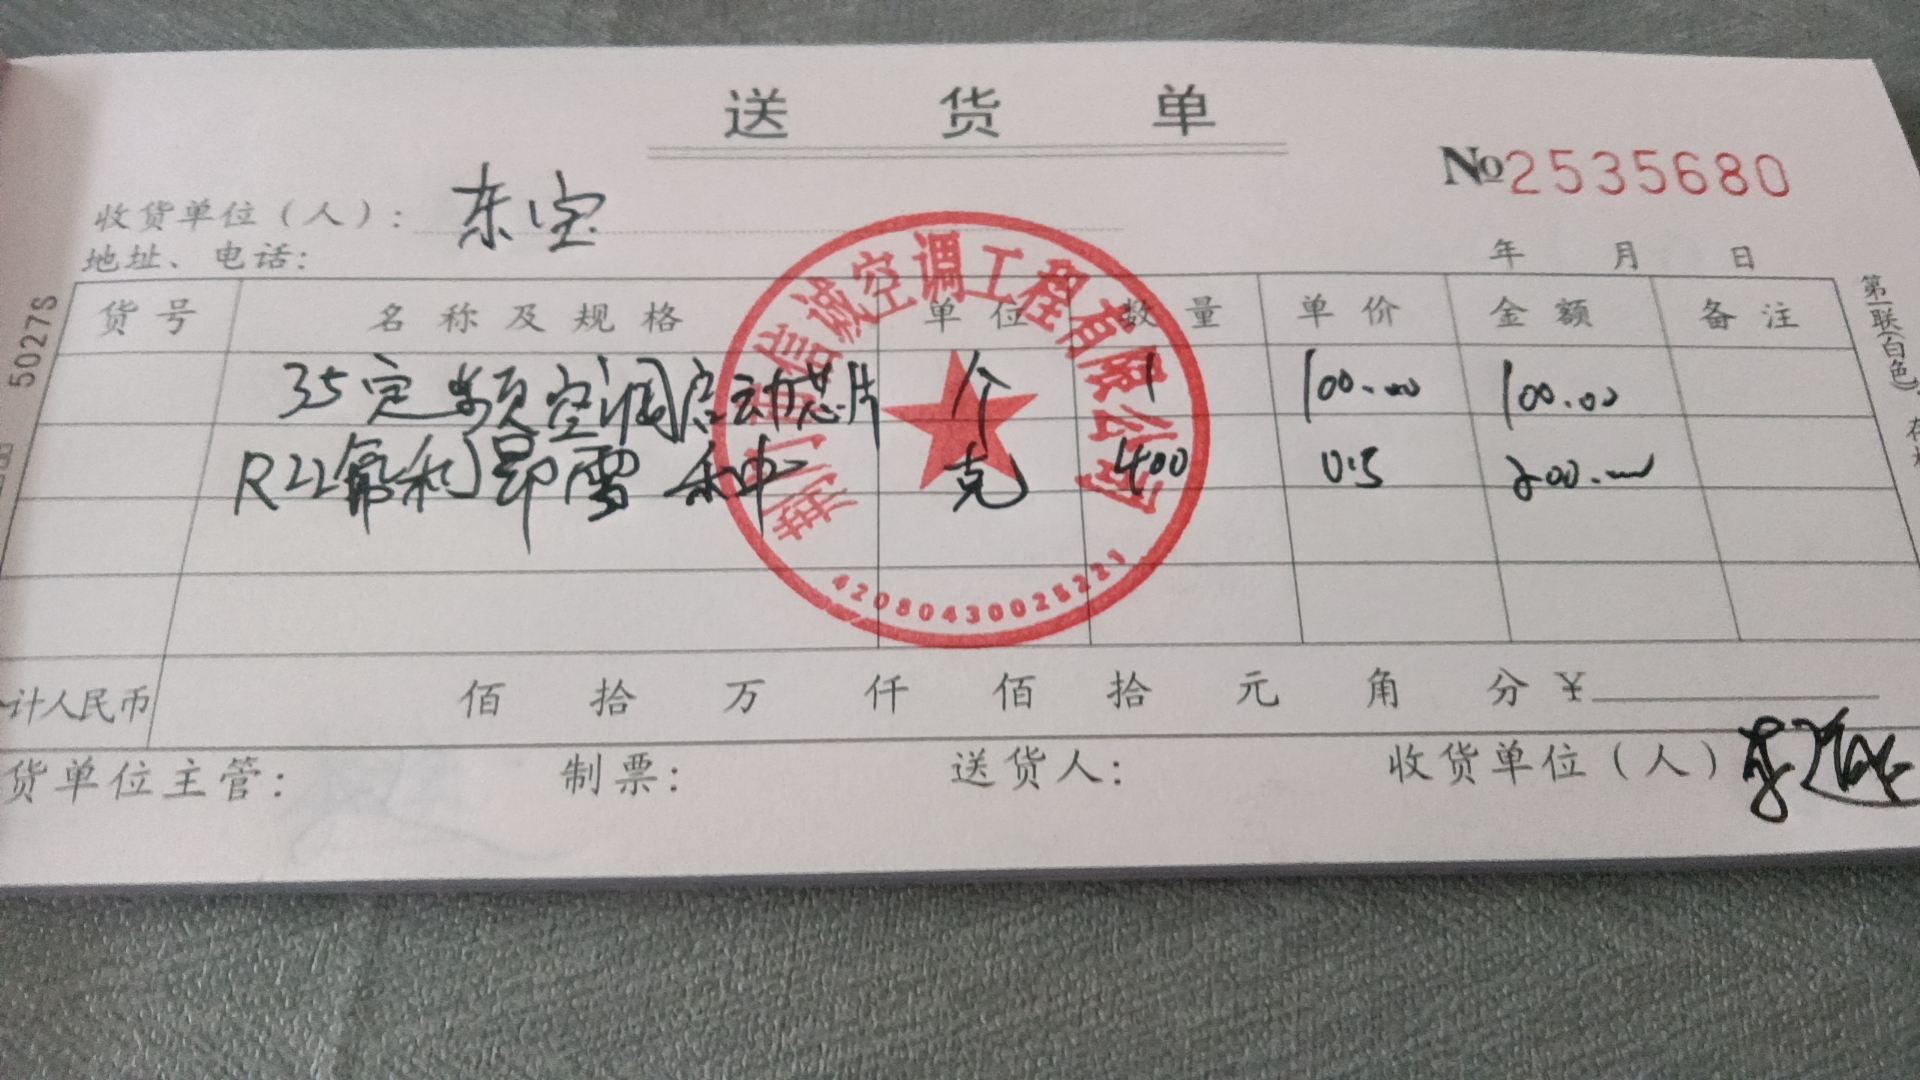 送货单
No2535680
收货单位（人）：东宝
地址、电话：
年 月 日
货号 名称及规格 单位 数量 单价 金额 备注
35定频空调启动芯片 个 1 100.00 100.00
R22氟利昂雪种 克 400 0.5 200.00
计人民币 佰 拾 万 仟 佰 拾 元 角 分 ¥
货单位主管： 制票： 送货人： 收货单位（人）
信诚空调工程有限公司
50275
第一联（白色）